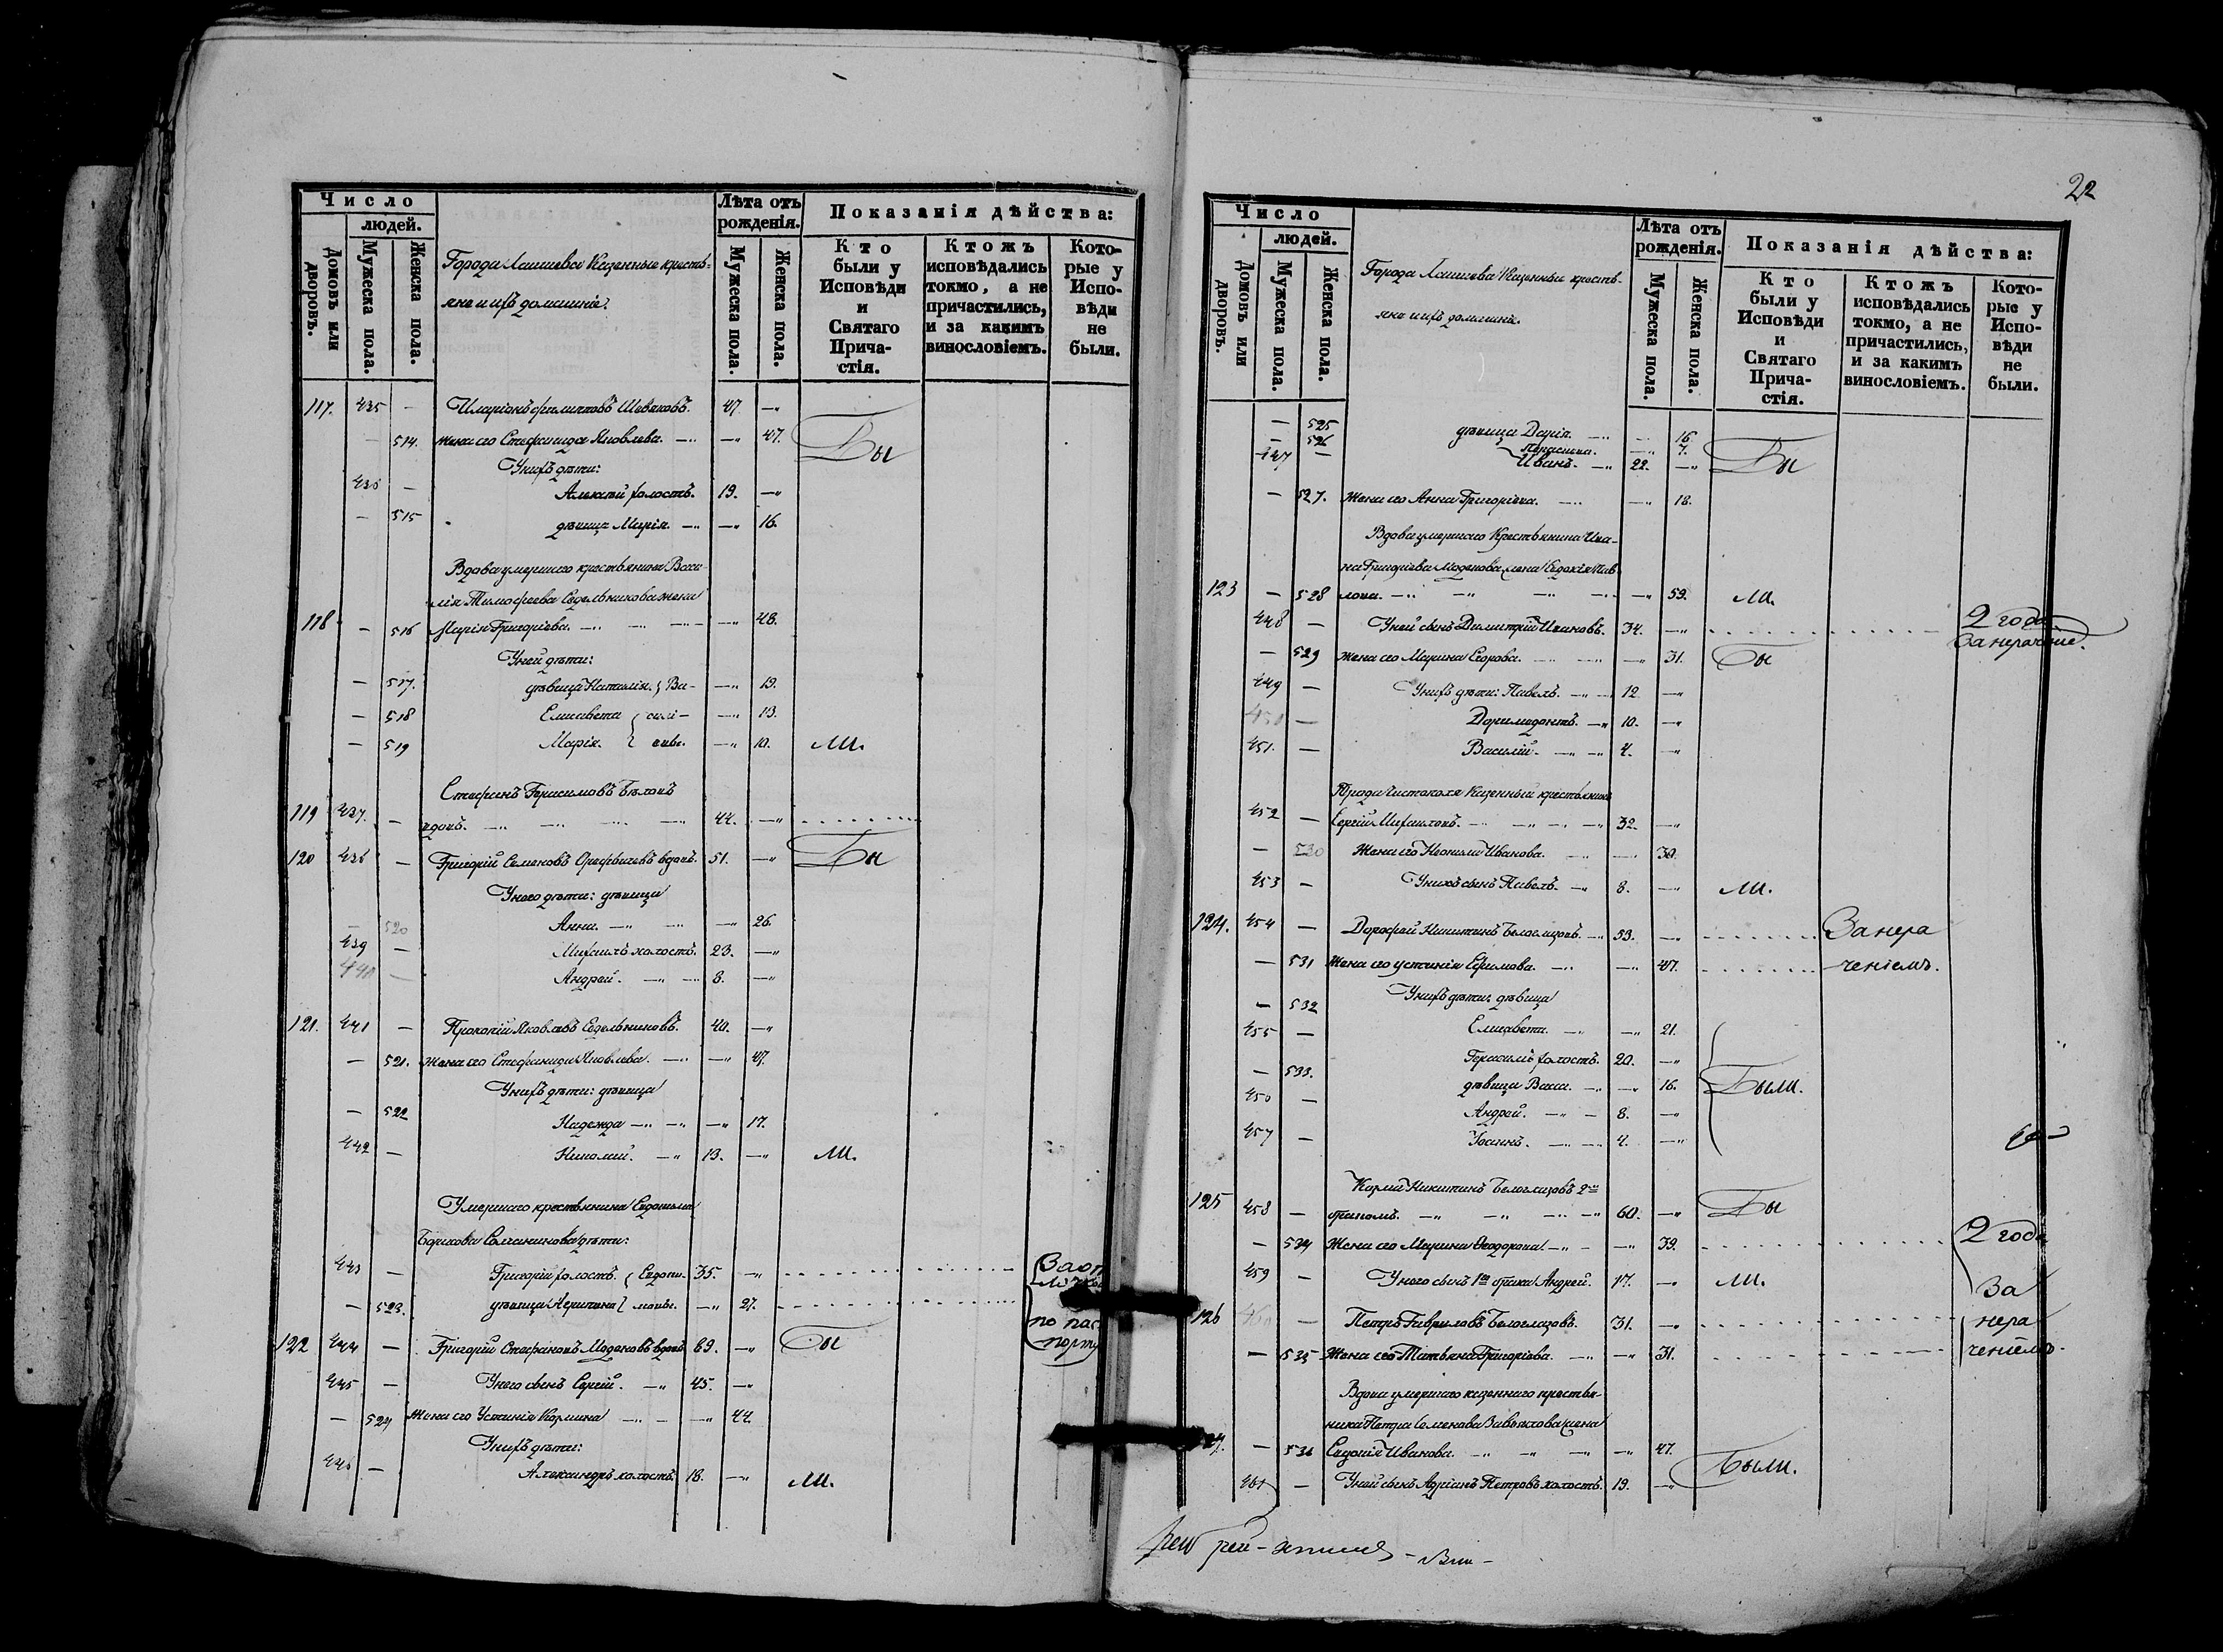 Число
людей.
Домовъ или дворовъ.
Мужеска пола.
Женска пола.
Города Лаишева Казенные кресть-
яне и ихъ домашніе.
Лѣта отъ рожденія.
Мужеска пола.
Женска пола.
Показанія дѣйства:
Кто были у Исповѣди и Святаго Прича-стія.
Ктожъ исповѣдались токмо, а не причастились, и за какимъ винословіемъ.
Кото-рые у Испо-вѣди не были.
117. 435 — 47. —„
— 514. жена его Стефанида Яковлева. —„ 47. Бы
У нихъ дѣти:
436 — Алексѣй холостъ. 19. —„
— 515 дѣвица Марія. —„ 16.
Вдова умершаго крестьянина Васи-
лія Тимофеева Седельникова жена
118 — 516 Марія Григоріева. —„ 48.
У ней дѣти:
— 517. дѣвица Наталія. } Ва- —„ 19.
— 518 Елисавета } сили- —„ 13.
— 519 Марія. } евы. —„ 10. ли.
Стефанъ Герасимовъ Бѣловъ
119 437. — вдовъ. 44. —„
120 438 — Григорій Семеновъ вдовъ. 51. —„ Бы
У него дѣти: дѣвица
— 520 Анна. —„ 26.
439 — Михаилъ холостъ. 23. —„
440 — Андрей. 8. —„
121. 441 — Прокопій Яковлевъ Седельниковъ. 40. —„
— 521. жена его Стефанида Яковлева. —„ 47.
У нихъ дѣти: дѣвица
— 522 Надежда —„ 17.
442 — 13. —„ ли.
Умершаго крестьянина Евдокима
дѣти:
443 — Григорій холостъ. } Евдоки- 35. —„
— 523. дѣвица Агрипина } мовы. —„ 27.
по пас
порту
122 444 — Григорій Стефановъ Модоновъ вдовъ 69. —„ Бы
445 — У него сынъ Сергій. 45. —„
— 524 Жена его Устинія Карпова —„ 44.
У нихъ дѣти:
446 — Александръ холостъ. 18. —„ ли.
22
Число
людей.
Домовъ или дворовъ.
Мужеска пола.
Женска пола.
Города Лаишева Казенные кресть-
яне и ихъ домашніе.
Лѣта отъ рожденія.
Мужеска пола.
Женска пола.
Показанія дѣйства:
Кто были у Исповѣди и Святаго Прича-стія.
Ктожъ исповѣдались токмо, а не причастились, и за какимъ винословіемъ.
Кото-рые у Испо-вѣди не были.
— 525 дѣвица Дарія. 16
— 526 7.
447 — Иванъ. 22. —„ Бы
— 527. Жена его Анна Григоріева. —„ 18.
Вдова умершаго Крестьянина Ива-
на Григоріева Модонова жена Евдокія Пав-
123 — 528 лова. —„ 59. ли.
448 — У ней сынъ Димитрій Ивановъ. 34. —„ 2 года
за нераченіе.
— 529 жена его Марина Егорова. —„ 31. Бы
449 — У нихъ дѣти: Павелъ. 12 —„
450 — Доримедонтъ. 10. —„
451. — Василій. 4. —„
Города Чистополя Казенный крестьянинъ
452 — Сергій Михаиловъ. 32. —„
— 530 Жена его Неонила Иванова. —„ 30.
453 — У нихъ сынъ Павелъ. 8. —„ ли.
124. 454 — Дорофей Никитинъ Белоглазовъ. 53. —„ За нера
— 531 Жена его Устинія Ефимова. —„ 47. ченіемъ.
— 532 У нихъ дѣти: дѣвица
455 — Елисавета. —„ 21.
Герасимъ холостъ. 20. —„
— 533. дѣвица Васса. —„ 16. Были.
456 — Андрей. 8. —„
457 — Іоаннъ. 4. —„
Карпъ Никитинъ Белоглазовъ 2мъ
125 458 — бракомъ. 60. —„ Бы
— 534 Жена его Марина Ѳеодорова. —„ 39. 2 года
459 — У него сынъ 1го брака Андрей. 17. —„ ли. За
126 460 — Петръ Гавриловъ Белоглазовъ. 31. —„ нера
— 535 Жена его Татьяна Григоріева. —„ 31. ченіемъ.
Вдова умершаго казеннаго крестья-
нина Петра Семенова жена
— 536 Евдокія Иванова. —„ 47.
461 — У ней сынъ Адріанъ Петровъ холостъ. 19. —„ Были.